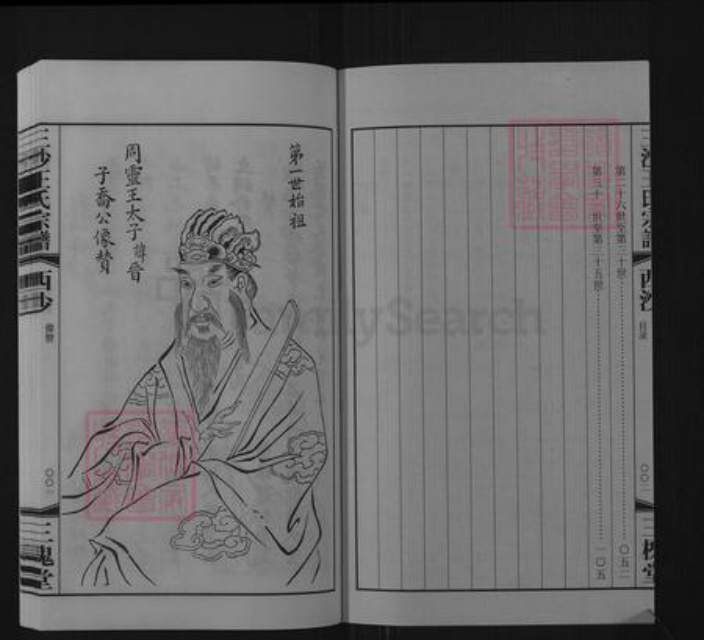 第二十六世至第三十世……〇五二
第三十一世至第三十五世……一〇五
三沙王氏宗譜
西沙
目录
〇〇二
三槐堂
第一世始祖
周靈王太子諱晉
子喬公像贊
三沙王氏宗譜
西沙
像贊
〇〇一
三槐堂
FamilySearch